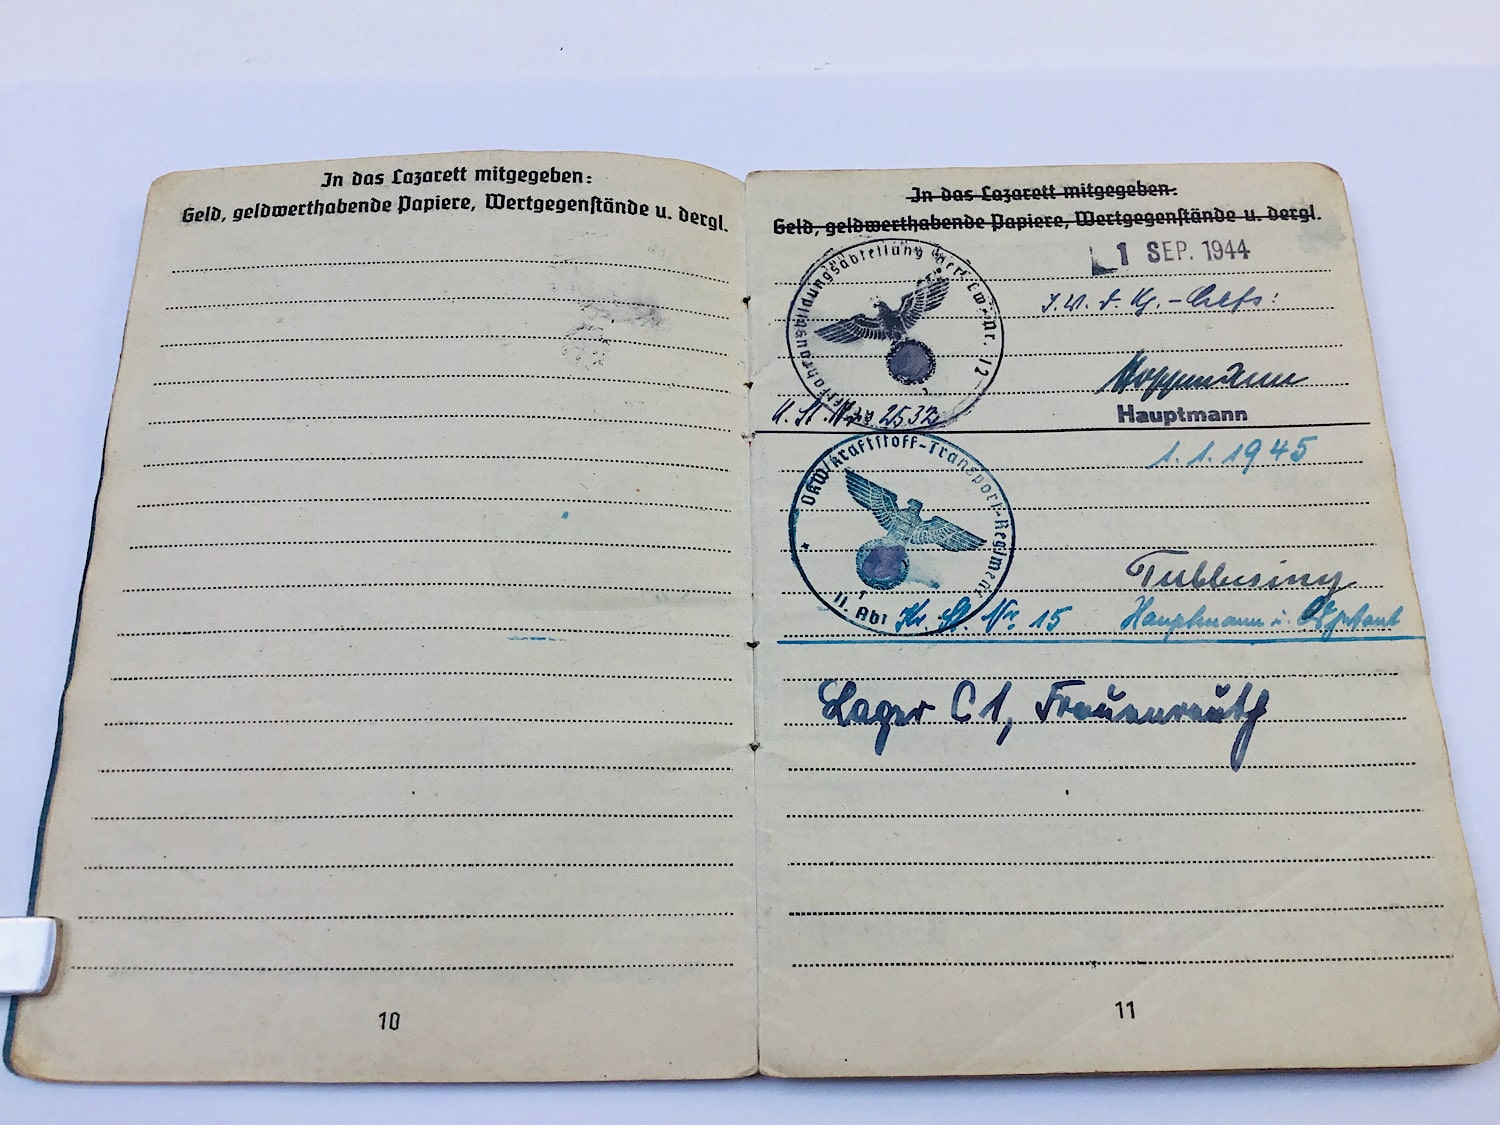 In das Lazarett mitgegeben:
Geld, geldwerthabende Papiere, Wertgegenstände u. dergl.
10
In das Lazarett mitgegeben:
Geld, geldwerthabende Papiere, Wertgegenstände u. dergl.
1 SEP. 1944
Kraftfahrausbildungsabteilung Nr. 12
Hoffmann
u. St. Nr. 2532
Hauptmann
1.1.1945
OKW/Kraftstoff-Transport-Regiment
II. Abt
Kr. St. Nr. 15
Hauptmann u.
Lager C 1, Frauenreuth
11